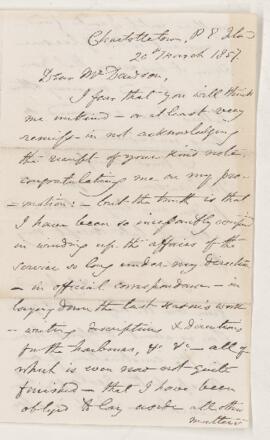 Charlottetown, P E Isld
20th March 1857.
Dear Mr Dawson,
I fear that you will think
me unkind — or at least very
remiss — in not acknowledging
the receipt of your kind note
congratulating me on my pro-
motion: — but the truth is that
I have been so incessantly occupied
in winding up the affairs of the
service so long under my direction
— in official correspondence — in
laying down the last season's work
— writing descriptions & directions
for the harbours, &c &c — all of
which is even now not quite
finished — that I have been
obliged to lay aside all other
matters